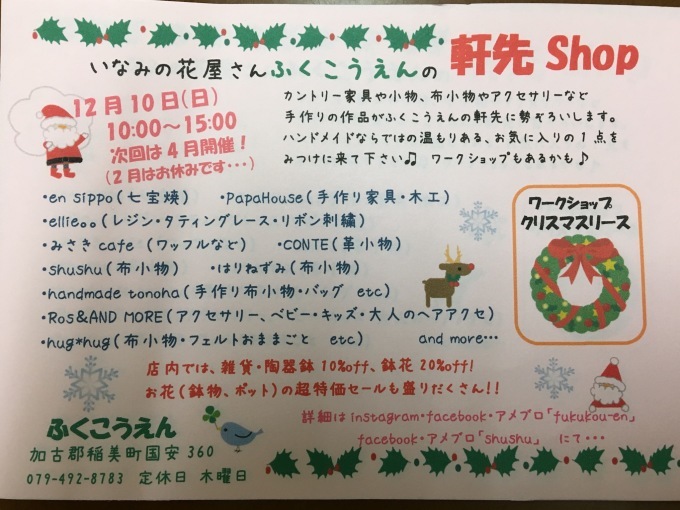 いなみの花屋さんふくこうえんの 軒先 Shop
12月10日(日)
10:00～15:00
次回は4月開催!
(2月はお休みです・・・)
カントリー家具や小物、布小物やアクセサリーなど
手作りの作品がふくこうえんの軒先に勢ぞろいします。
ハンドメイドならではの温もりある、お気に入りの1点を
みつけに来て下さい♫ ワークショップもあるかも♪
・en sippo(七宝焼) ・PapaHouse(手作り家具・木工)
・ellie。。(レジン・タティングレース・リボン刺繍)
・みさき cafe (ワッフルなど) ・CONTE(革小物)
・shushu(布小物) ・はりねずみ(布小物)
・handmade tonoha(手作り布小物・バッグ etc)
・Ros&AND MORE(アクセサリー、ベビー・キッズ・大人のヘアアクセ)
・hug*hug(布小物・フェルトおままごと etc) and more…
ワークショップ
クリスマスリース
店内では、雑貨・陶器鉢10%off、鉢花20%off!
お花(鉢物、ポット)の超特価セールも盛りだくさん!!
詳細は instagram・facebook・アメブロ「fukukou-en」
facebook・アメブロ「shushu」 にて・・・
ふくこうえん
加古郡稲美町国安 360
079-492-8783 定休日 木曜日